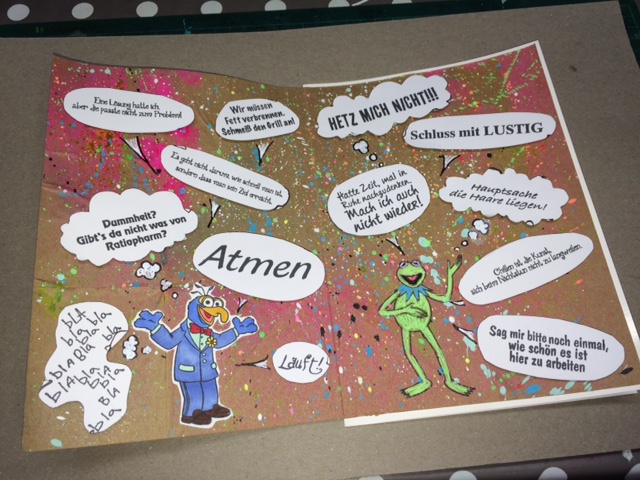 Eine Lösung hatte ich,
aber die passte nicht zum Problem!
Wir müssen
Fett verbrennen.
Schmeiß den Grill an!
Es geht nicht darum, wie schnell man ist,
sondern dass man sein Ziel erreicht.
Dummheit?
Gibt's da nicht was von
Ratiopharm?
Atmen
bLA
bla
bla
bla
bLA
Bla
bla
bla
bla
bla
BLA
bla
Läuft!
HETZ MICH NICHT!!!
Schluss mit LUSTIG
Hatte Zeit, mal in
Ruhe nachzudenken.
Mach ich auch
nicht wieder!
Hauptsache
die Haare liegen!
Chillen ist die Kunst,
sich beim Nichtstun nicht zu langweilen.
Sag mir bitte noch einmal,
wie schön es ist
hier zu arbeiten